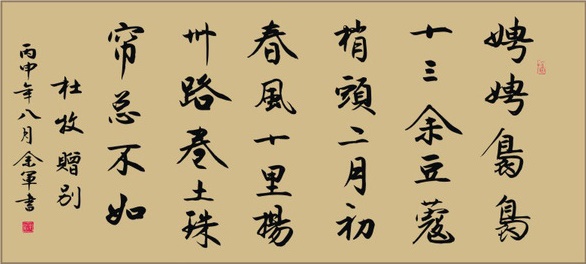 娉娉裊裊
十三余豆蔻
梢頭二月初
春風十里揚
州路卷上珠
帘总不如
杜牧赠别
丙申年八月余軍書